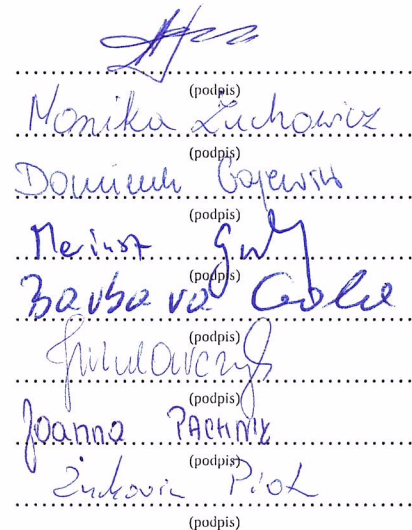 (podpis)
Monika Żuchowicz
(podpis)
Dominik Gajewski
(podpis)
Mariusz
(podpis)
Barbara
(podpis)
(podpis)
Joanna PACHNIK
(podpis)
Piotr
(podpis)